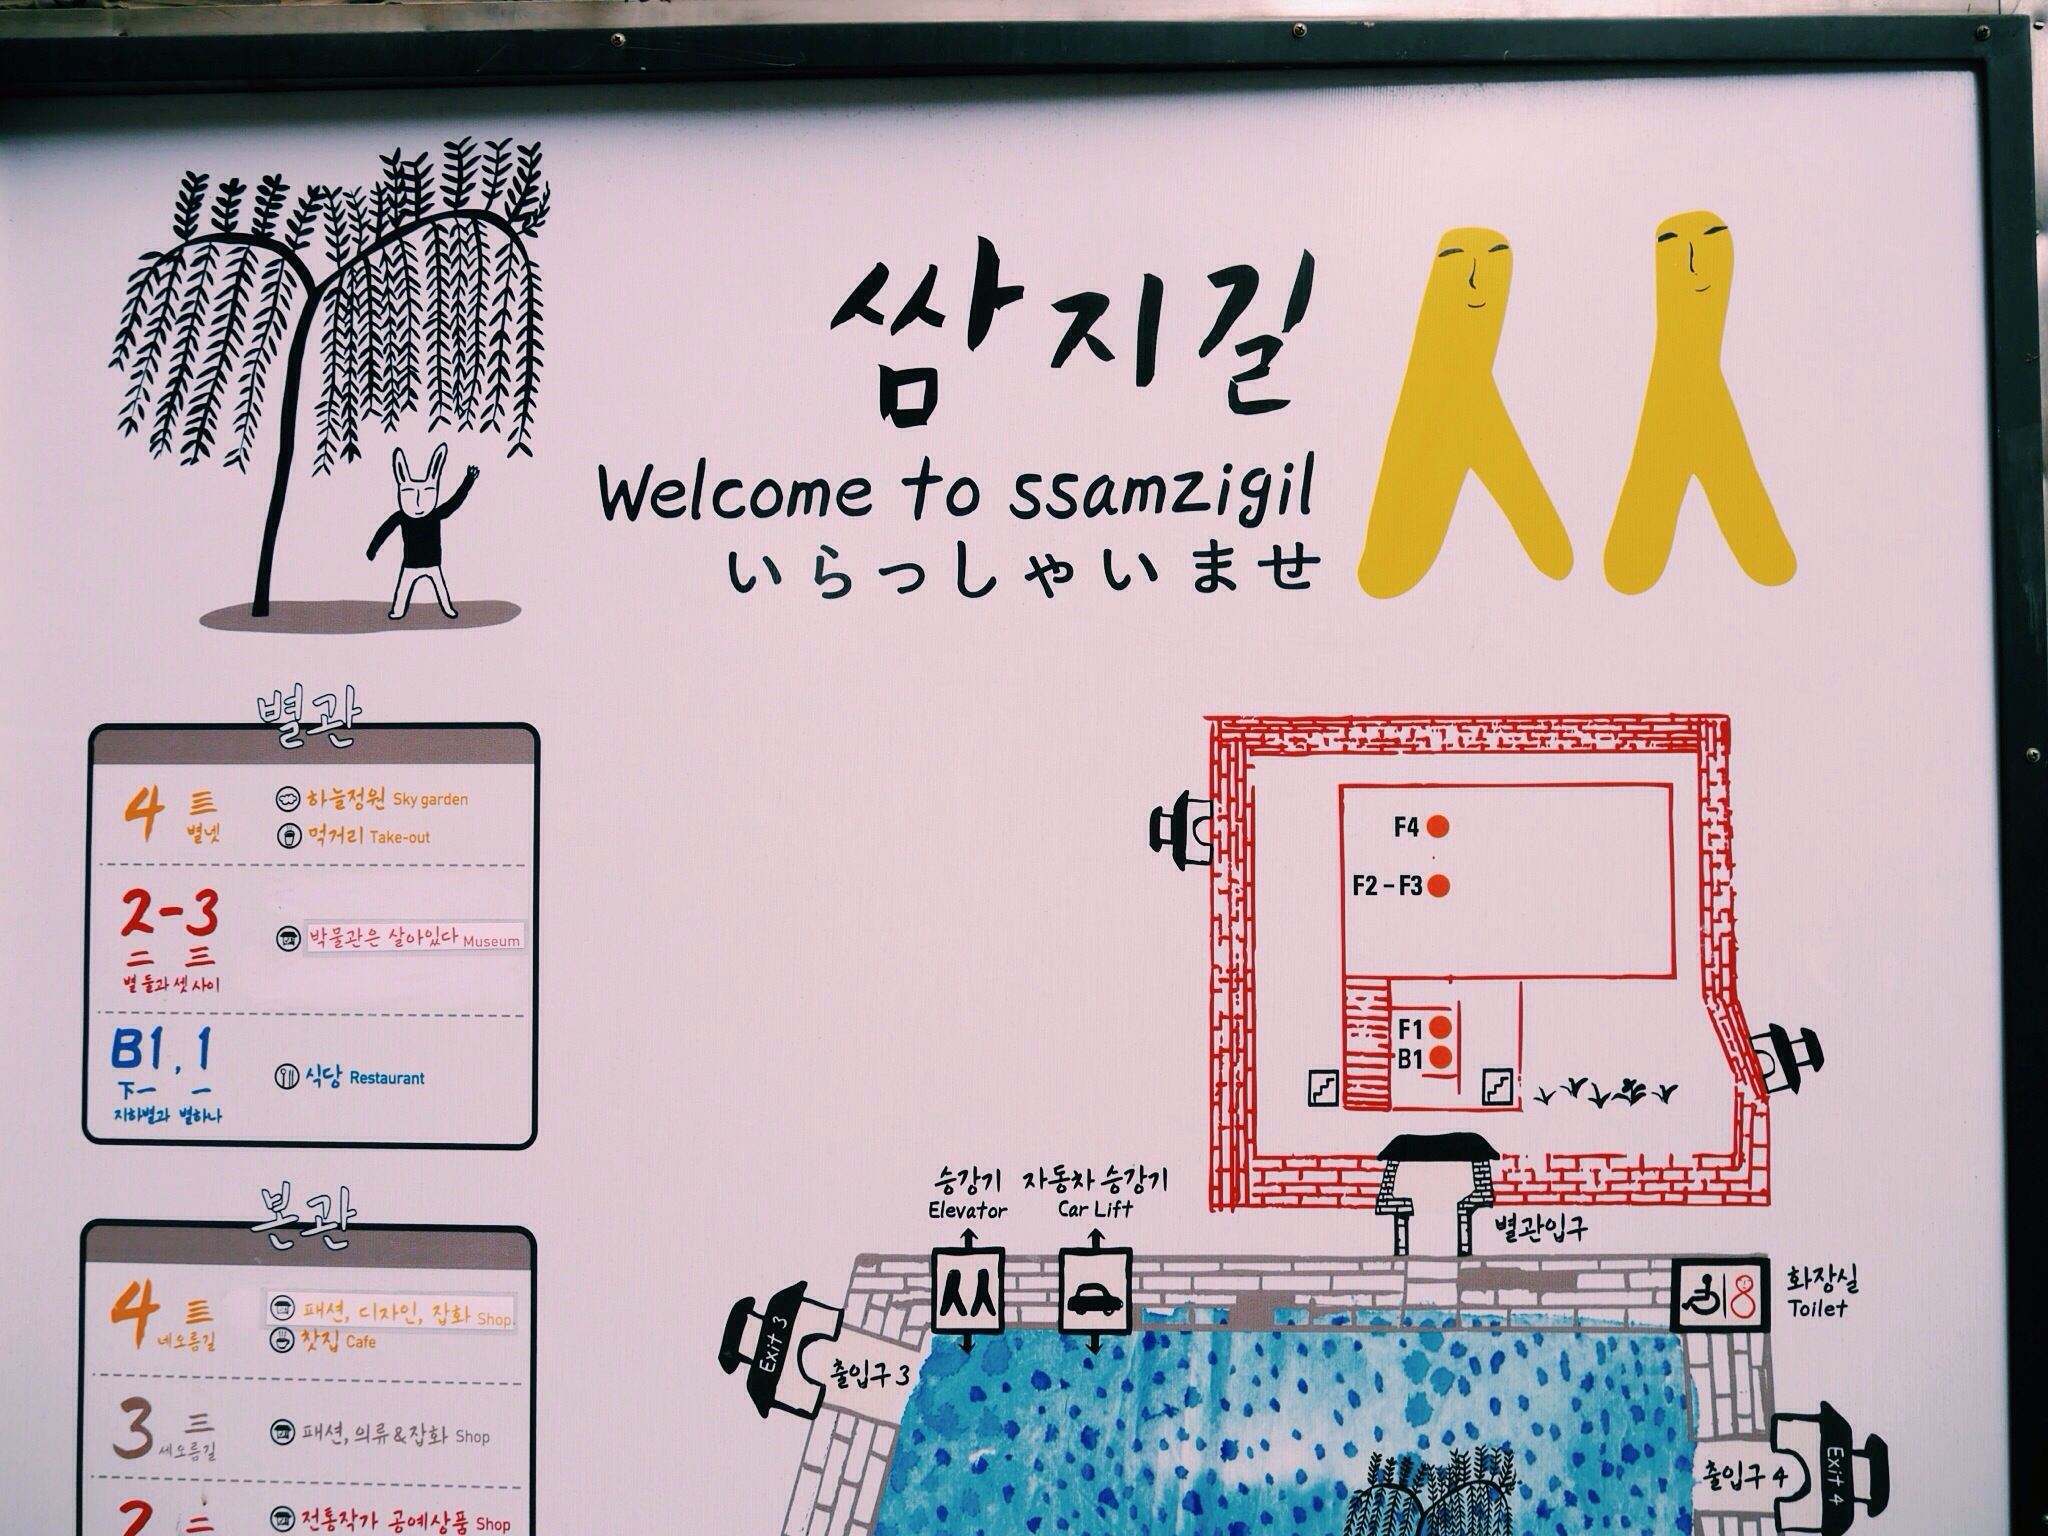 쌈지길
Welcome to ssamzigil
いらっしゃいませ
별관
4 亖
별넷
하늘정원 Sky garden
먹거리 Take-out
2-3
二 三
별 둘과 셋 사이
박물관은 살아있다 Museum
B1, 1
下一 一
지하별과 별하나
식당 Restaurant
본관
4 亖
네오름길
패션, 디자인, 잡화 Shop
찻집 Cafe
3 三
세오름길
패션, 의류&잡화 Shop
2 二
전통작가 공예상품 Shop
F4
F2-F3
F1
B1
승강기
Elevator
자동차 승강기
Car Lift
별관입구
화장실
Toilet
Exit 3
출입구 3
출입구 4
Exit 4